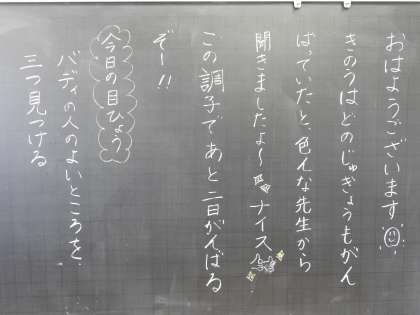 おはようございます
きのうはどのじゅぎょうもがん
ばっていたと、色んな先生から
聞きましたよ～ ナイス
この調子であと二日がんばる
ぞー!!
今日の目ひょう
バディの人のよいところを
三つ見つける